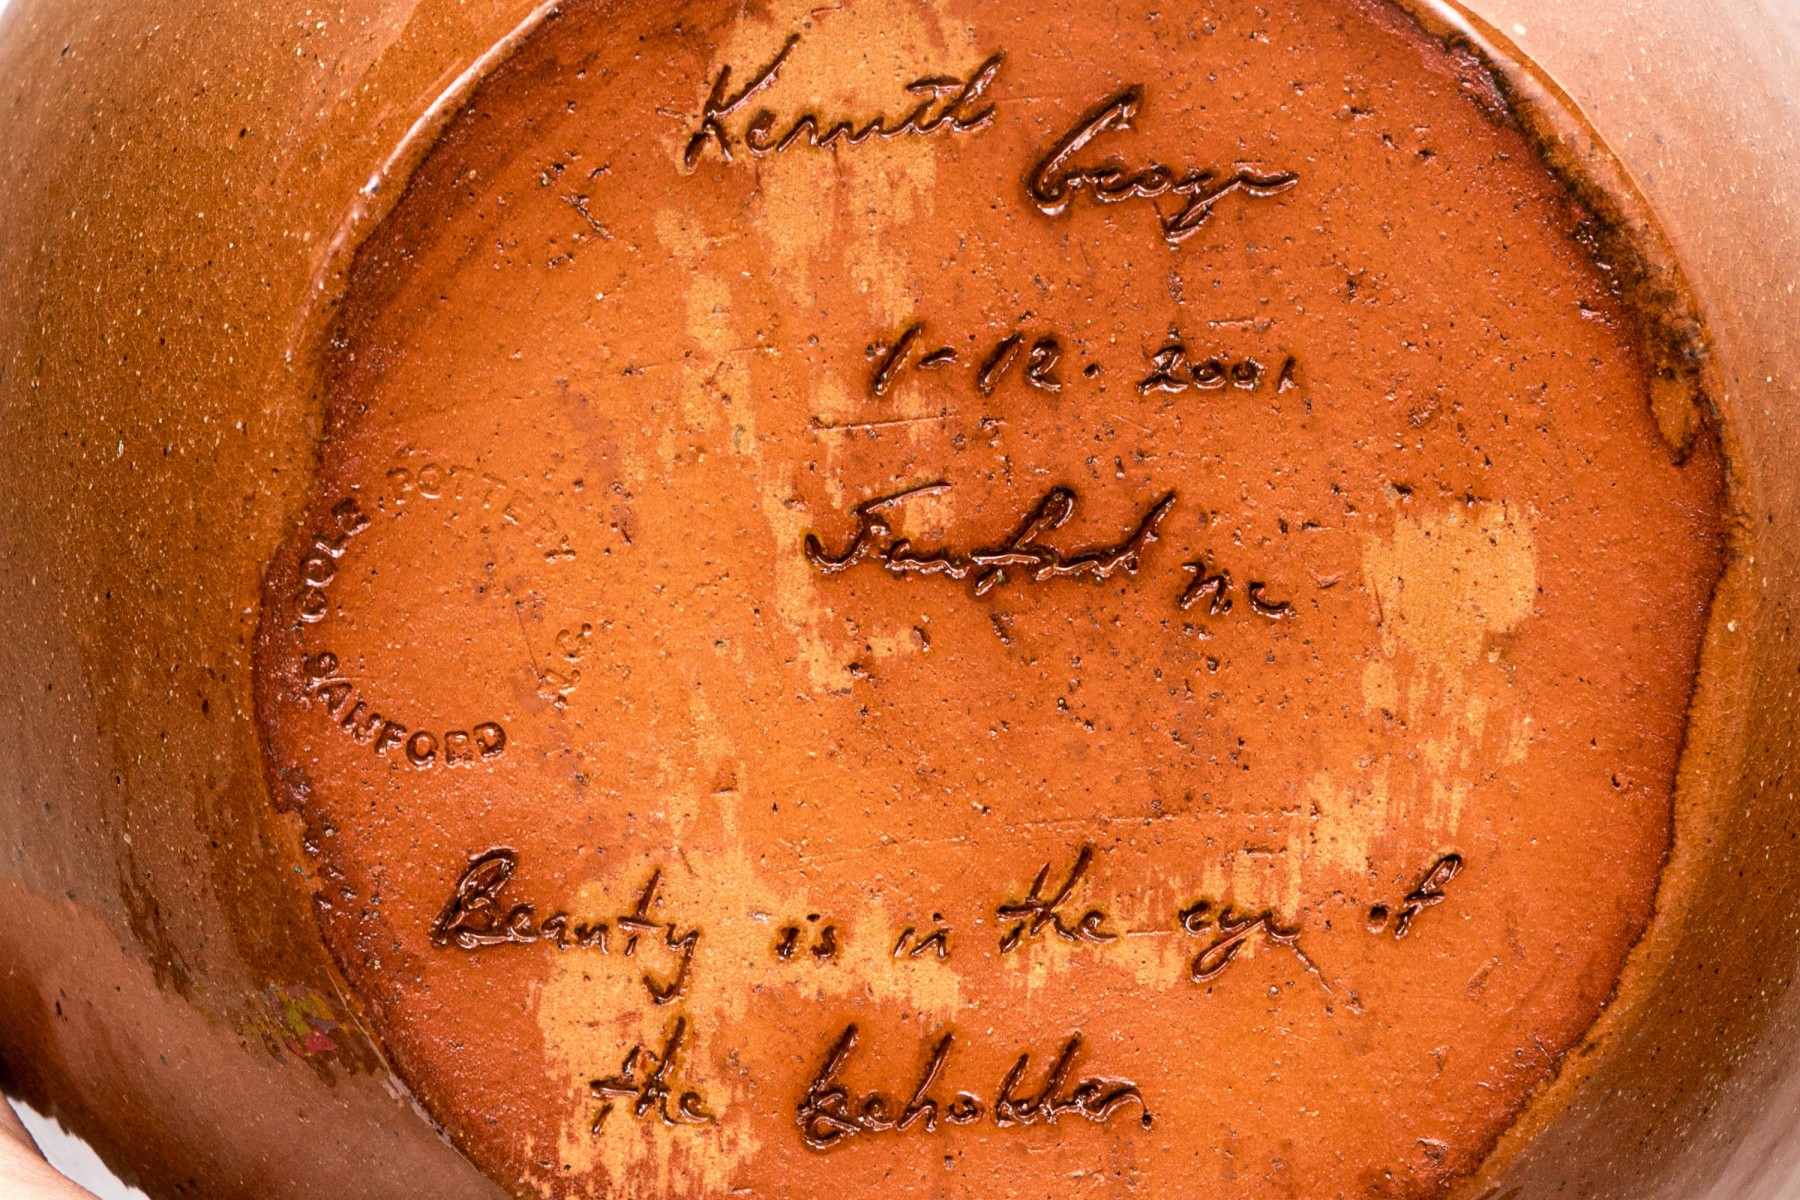 Kenneth George
1-12. 2001
Sanford n.c
COLE POTTERY
SANFORD N.C.
Beauty is in the eye of
the beholder.